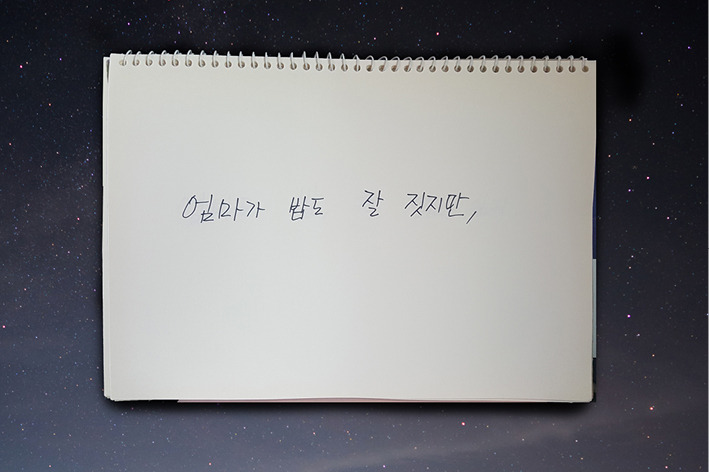 엄마가 밥도 잘 짓지만,